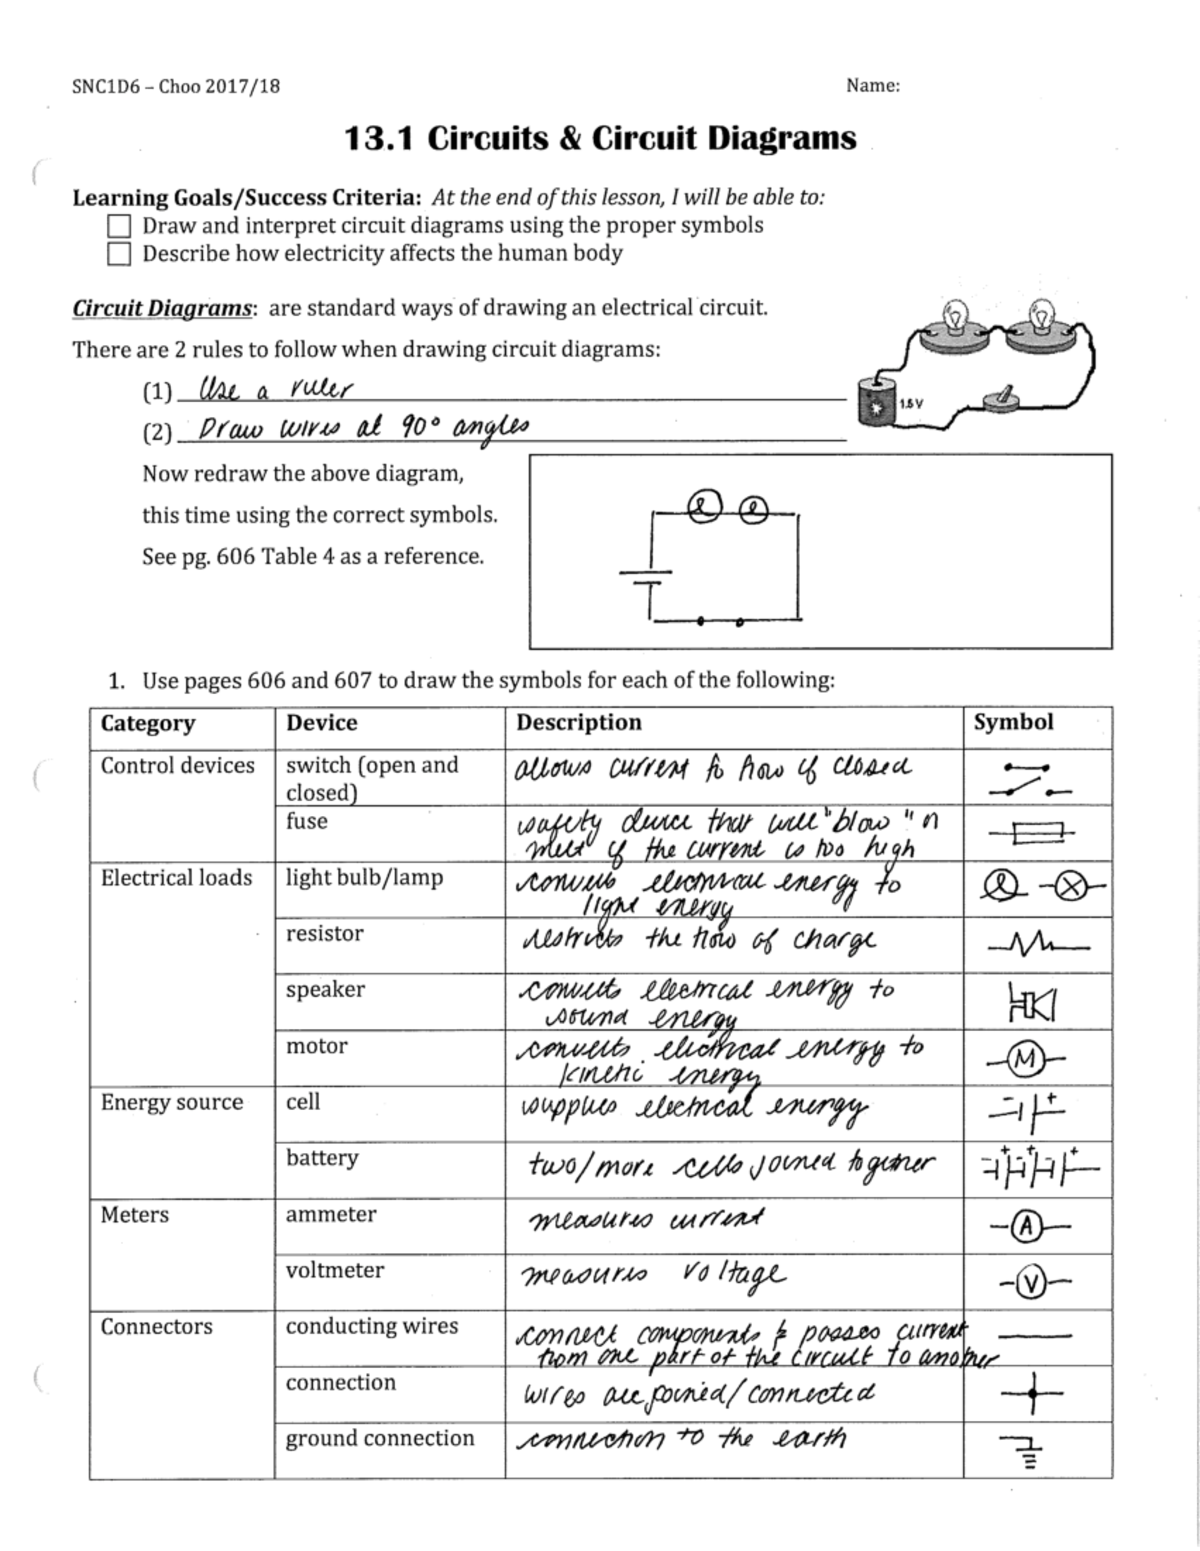 SNC1D6 – Choo 2017/18 Name:
13.1 Circuits & Circuit Diagrams
Learning Goals/Success Criteria: At the end of this lesson, I will be able to:
Draw and interpret circuit diagrams using the proper symbols
Describe how electricity affects the human body
Circuit Diagrams: are standard ways of drawing an electrical circuit.
There are 2 rules to follow when drawing circuit diagrams:
(1) Use a ruler
1.5 V
(2) Draw wires at 90° angles
Now redraw the above diagram,
this time using the correct symbols.
See pg. 606 Table 4 as a reference.
1. Use pages 606 and 607 to draw the symbols for each of the following:
Category Device Description Symbol
Control devices switch (open and closed) allows current to flow if closed
fuse safety device that will "blow" n
melt if the current is too high
Electrical loads light bulb/lamp converts electrical energy to
light energy
resistor restricts the flow of charge
speaker converts electrical energy to
sound energy
motor converts electrical energy to
kinetic energy
M
Energy source cell supplies electrical energy
battery two/more cells joined together
Meters ammeter measures current A
voltmeter measures voltage V
Connectors conducting wires connect components & passes current
from one part of the circuit to another
connection wires are joined/connected
ground connection connection to the earth